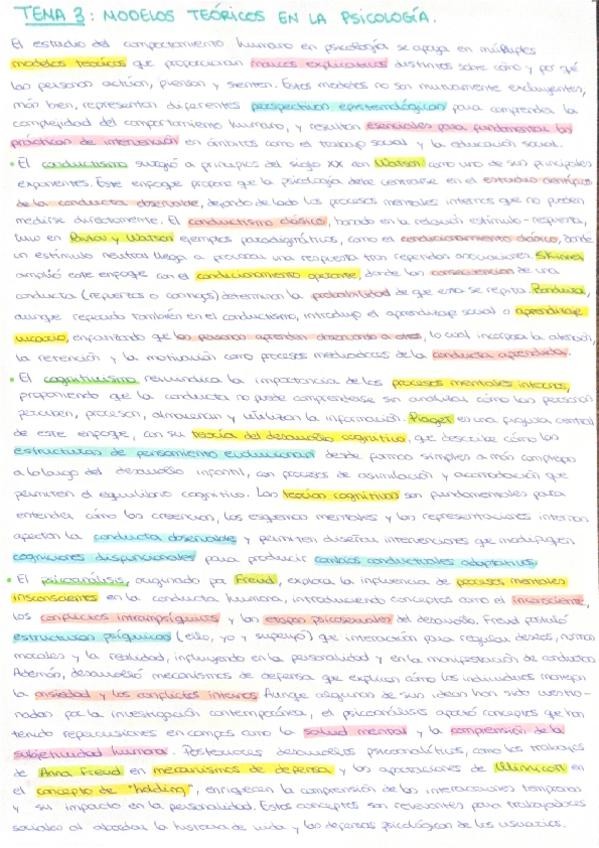 TEMA 3: MODELOS TEÓRICOS EN LA PSICOLOGÍA.
El estudio del comportamiento humano en psicología se apoya en múltiples
modelos teóricos que proporcionan marcos explicativos distintos sobre cómo y por qué
las personas actúan, piensan y sienten. Estos modelos no son mutuamente excluyentes,
más bien, representan diferentes perspectivas epistemológicas para comprender la
complejidad del comportamiento humano, y resultan esenciales para fundamentar las
prácticas de intervención en ámbitos como el trabajo social y la educación social.
• El conductismo surgió a principios del siglo XX con Watson como uno de sus principales
exponentes. Este enfoque propone que la psicología debe centrarse en el estudio científico
de la conducta observable, dejando de lado los procesos mentales internos que no pueden
medirse directamente. El conductismo clásico, basado en la relación estímulo-respuesta,
tuvo en Pavlov y Watson ejemplos paradigmáticos, como el condicionamiento clásico, donde
un estímulo neutral llega a provocar una respuesta tras repetidas asociaciones. Skinner
amplió este enfoque con el condicionamiento operante, donde las consecuencias de una
conducta (refuerzos o castigos) determinan la probabilidad de que esta se repita. Bandura,
aunque también en el conductismo, introdujo el aprendizaje social o aprendizaje
vicario, enfatizando que las personas aprenden observando a otros, lo cual incorpora la atención,
la retención y la motivación como procesos mediadores de la conducta aprendida.
• El cognitivismo reivindica la importancia de los procesos mentales internos,
proponiendo que la conducta no puede comprenderse sin analizar cómo las personas
perciben, procesan, almacenan y utilizan la información. Piaget es una figura central
de este enfoque, con su teoría del desarrollo cognitivo, que describe cómo las
estructuras de pensamiento evolucionan desde formas simples a más complejas
a lo largo del desarrollo infantil, con procesos de asimilación y acomodación que
permiten el equilibrio cognitivo. Las teorías cognitivas son fundamentales para
entender cómo las creencias, los esquemas mentales y las representaciones internas
afectan la conducta observable y permiten diseñar intervenciones que modifiquen
cogniciones disfuncionales para producir cambios conductuales adaptativos.
• El psicoanálisis, por Freud, explora la influencia de procesos mentales
inconscientes en la conducta humana, introduciendo conceptos como el inconsciente,
los conflictos intrapsíquicos y las etapas psicosexuales del desarrollo. Freud postuló
estructuras psíquicas (ello, yo y superyó) que interactúan para regular deseos, normas
morales y la realidad, influyendo en la personalidad y en la manifestación de conductas
Además, desarrolló mecanismos de defensa que explican cómo los individuos manejan
la ansiedad y los conflictos internos. Aunque algunas de sus ideas han sido cuestio-
nadas por la investigación contemporánea, el psicoanálisis aportó conceptos que han
tenido repercusiones en campos como la salud mental y la comprensión de la
subjetividad humana. Posteriores desarrollos psicoanalíticos, como los trabajos
de Anna Freud en mecanismos de defensa y las aportaciones de Winnicott en
el concepto de "holding", enriquecen la comprensión de las interacciones tempranas
y su impacto en la personalidad. Estos conceptos son relevantes para trabajadores
sociales al abordar la historia de vida y las defensas psicológicas de los usuarios.